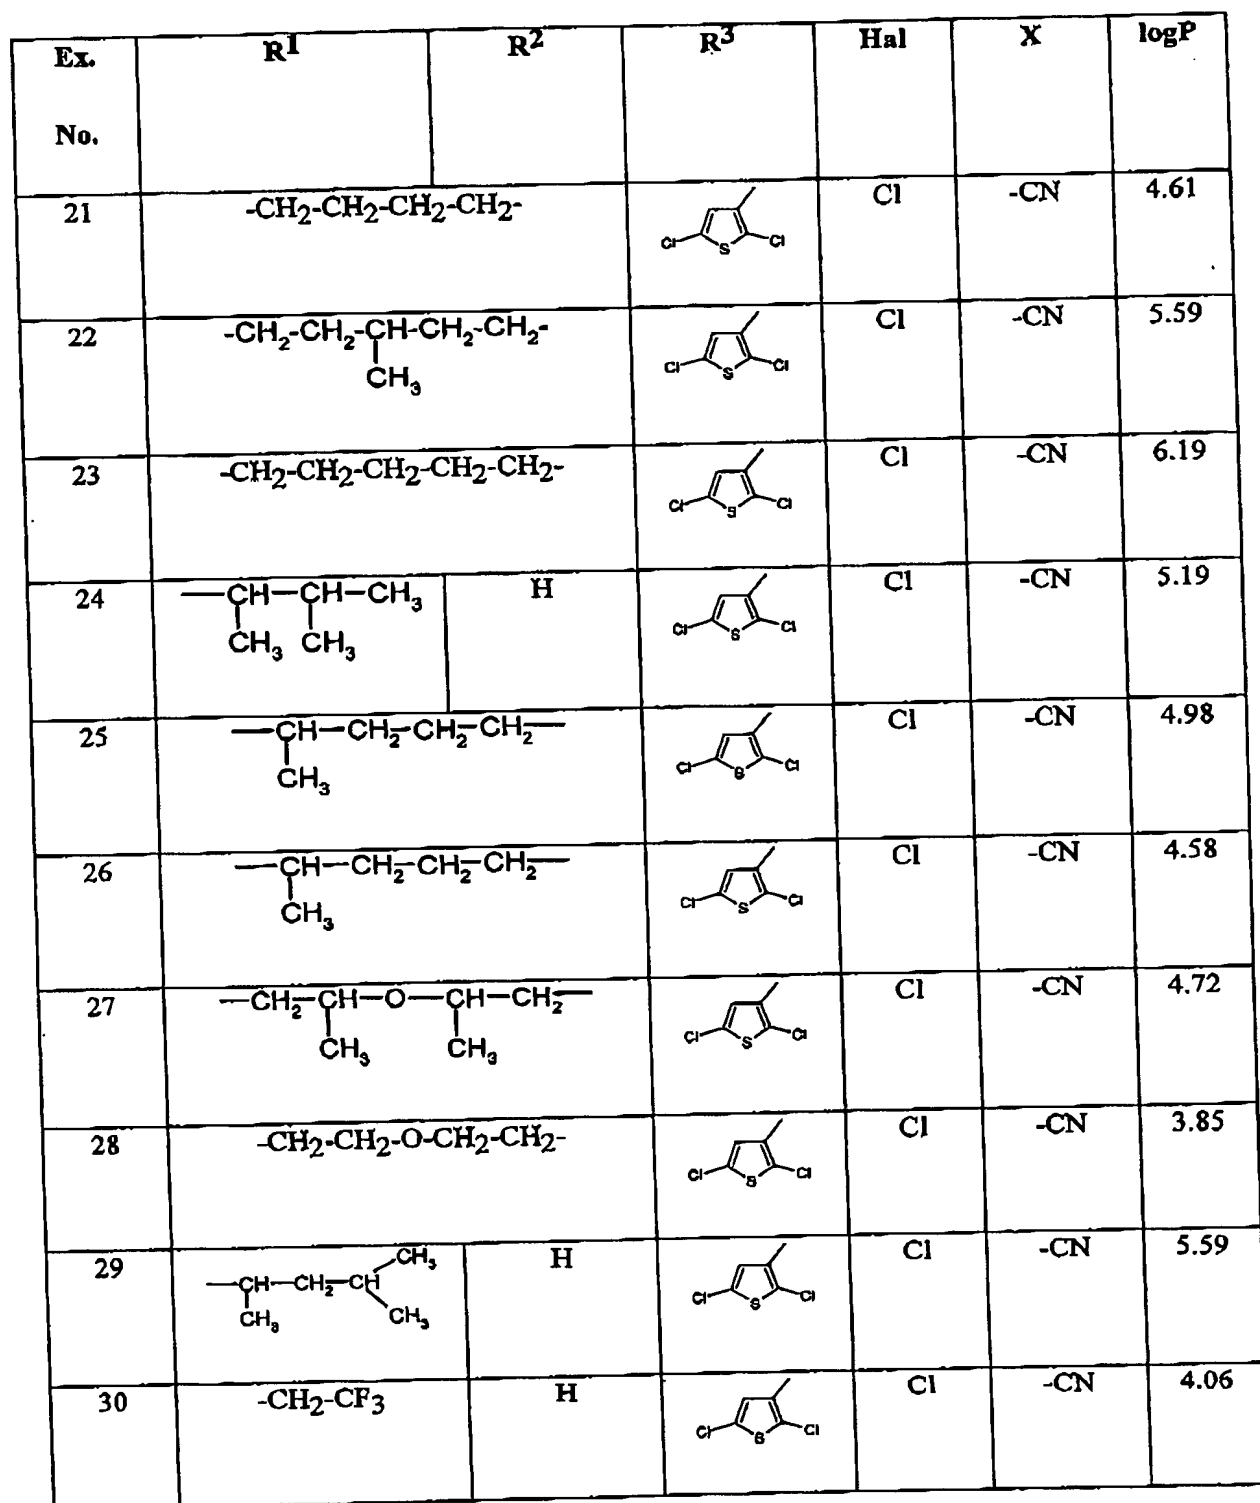 Ex. No. R1 R2 R3 Hal X logP
21 -CH2-CH2-CH2-CH2- Cl S Cl Cl -CN 4.61
22 -CH2-CH2-CH-CH2-CH2- CH3 Cl S Cl Cl -CN 5.59
23 -CH2-CH2-CH2-CH2-CH2- Cl S Cl Cl -CN 6.19
24 —CH—CH—CH3 CH3 CH3 H Cl S Cl Cl -CN 5.19
25 —CH—CH2—CH2—CH2— CH3 Cl S Cl Cl -CN 4.98
26 —CH—CH2—CH2—CH2— CH3 Cl S Cl Cl -CN 4.58
27 —CH2—CH—O—CH—CH2— CH3 CH3 Cl S Cl Cl -CN 4.72
28 -CH2-CH2-O-CH2-CH2- Cl S Cl Cl -CN 3.85
29 —CH—CH2—CH CH3 CH3 CH3 H Cl S Cl Cl -CN 5.59
30 -CH2-CF3 H Cl S Cl Cl -CN 4.06